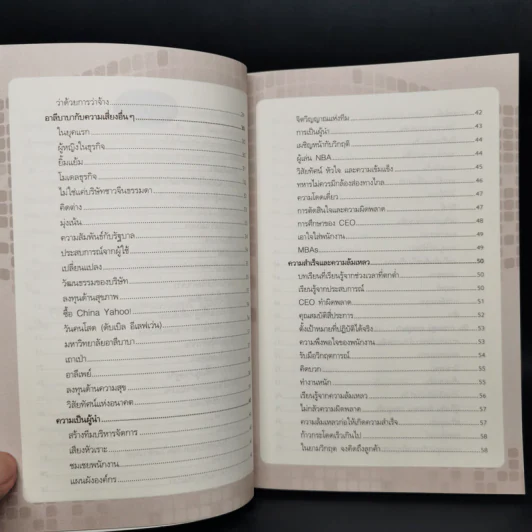 ว่าด้วยการว่าจ้าง
อาลีบาบากับความเสี่ยงอื่นๆ
ในยุคแรก
ผู้หญิงในธุรกิจ
ยิ้มแย้ม
โมเดลธุรกิจ
ไม่ใช่แค่บริษัทชาวจีนธรรมดา
คิดต่าง
มุ่งเน้น
ความสัมพันธ์กับรัฐบาล
ประสบการณ์จากผู้ใช้
เปลี่ยนแปลง
วัฒนธรรมของบริษัท
ลงทุนด้านสุขภาพ
ซื้อ China Yahoo!
วันคนโสด (ดับเบิล อีเลฟเว่น)
มหาวิทยาลัยอาลีบาบา
เถาเป่า
อาลีเพย์
ลงทุนด้านความสุข
วิสัยทัศน์แห่งอนาคต
ความเป็นผู้นำ
สร้างทีมบริหารจัดการ
เสียงหัวเราะ
ชมเชยพนักงาน
แผนผังองค์กร
จิตวิญญาณแห่งทีม 42
การเป็นผู้นำ 43
เผชิญหน้ากับวิกฤติ 44
ผู้เล่น NBA 44
วิสัยทัศน์ หัวใจ และความเข้มแข็ง 46
ทหารไม่ควรมีกล้องส่องทางไกล 46
ความโดดเดี่ยว 47
การตัดสินใจและความผิดพลาด 47
การศึกษาของ CEO 48
เอาใจใส่พนักงาน 49
MBAs 49
ความสำเร็จและความล้มเหลว 50
บทเรียนที่เรียนรู้จากช่วงเวลาที่ตกต่ำ 50
เรียนรู้จากประสบการณ์ 50
CEO ทำผิดพลาด 51
คุณสมบัติสี่ประการ 52
ตั้งเป้าหมายที่ปฏิบัติได้จริง 52
ความพึงพอใจของพนักงาน 53
รับมือวิกฤตการณ์ 54
คิดบวก 54
ทำงานหนัก 55
เรียนรู้จากความล้มเหลว 56
ไม่กลัวความผิดพลาด 57
ความล้มเหลวก่อให้เกิดความสำเร็จ 57
ก้าวกระโดดเร็วเกินไป 58
ในยามวิกฤต จงคิดถึงลูกค้า 58